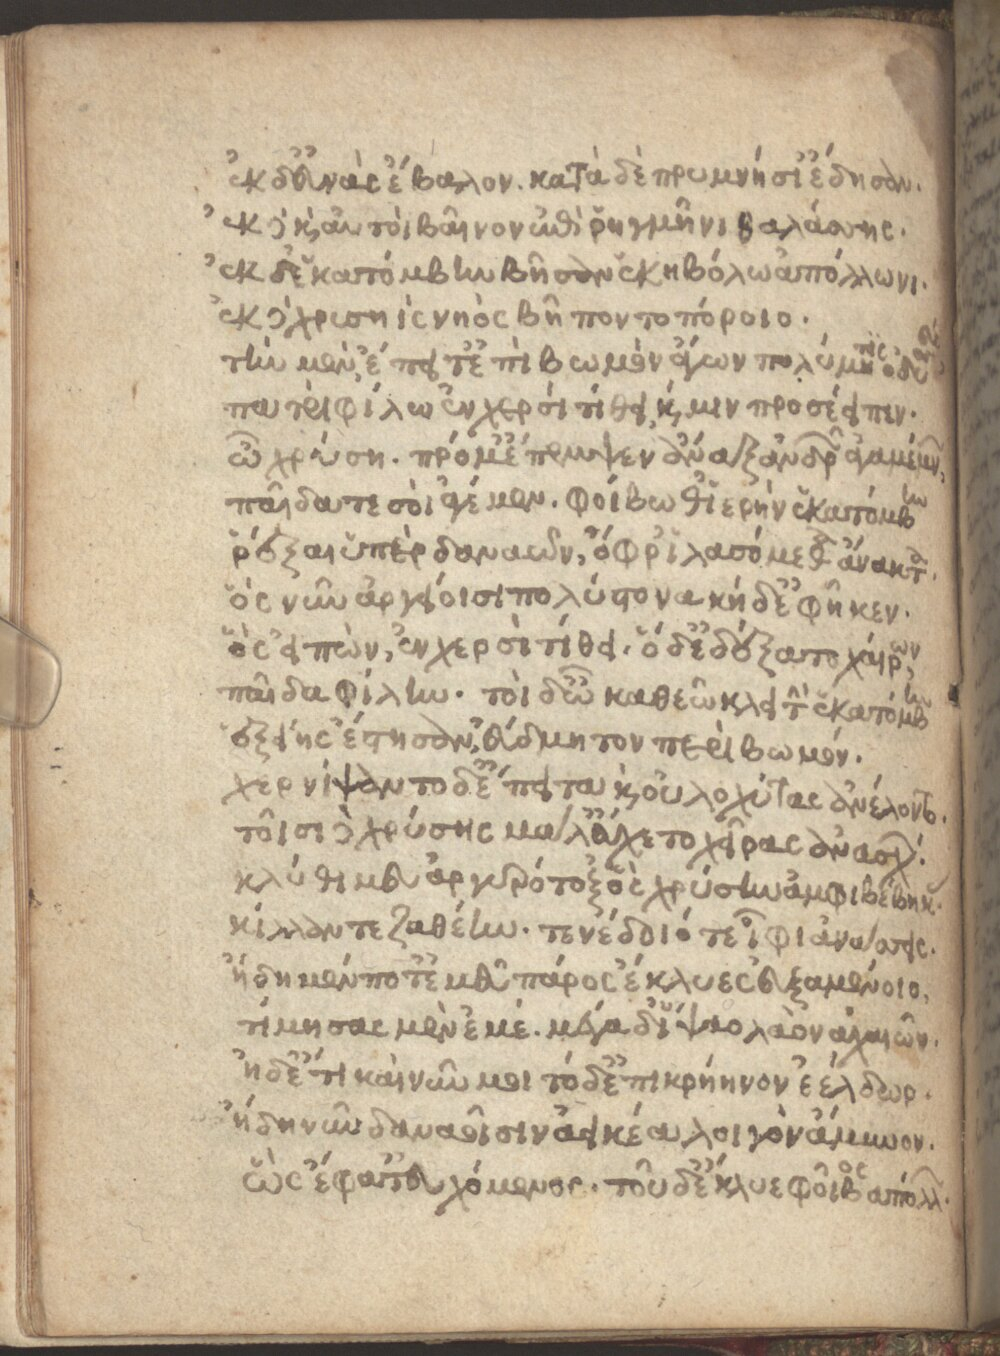 ἐκ δ' εὐνὰς ἔβαλον. κατὰ δὲ πρυμνήσι' ἔδησαν.
ἐκ δὲ καὶ αὐτοὶ βαῖνον ἐπὶ ῥηγμῆνι θαλάσσης.
ἐκ δ' ἑκατόμβην βῆσαν ἑκηβόλω ἀπόλλωνι.
ἐκ δὲ χρυσηὶς νηὸς βῆ ποντοπόροιο.
τὴν μὲν ἔπειτ' ἐπὶ βωμὸν ἄγων πολύμητις ὀδυσσεύς
πατρὶ φίλω ἐν χερσὶ τίθει καί μιν προσέειπεν.
ὦ χρύση. πρό μ' ἔπεμψεν ἄναξ ἀνδρῶν ἀγαμέμνων,
παῖδα τε σοὶ ἀγέμεν. φοίβω θ' ἱερὴν ἑκατόμβην
ῥέξαι ὑπὲρ δαναῶν, ὄφρ' ἱλασόμεθα ἄνακτα.
ὃς νῦν ἀργείοισι πολύστονα κήδε' ἐφῆκεν.
ὣς εἰπὼν, ἐν χερσὶ τίθει. ὁ δ' ἐδέξατο χαίρων,
παῖδα φίλην. τοὶ δ' ὦκα θεῶ κλειτὴν ἑκατόμβην
ἑξείης ἔστησαν, ἐΰδμητον περὶ βωμόν.
χερνίψαντο δ' ἔπειτα καὶ οὐλοχύτας ἀνέλοντο.
τοῖσι δὲ χρύσης μεγάλ' εὔχετο χεῖρας ἀνασχών.
κλῦθι μευ ἀργυρότοξ' ὃς χρύσην ἀμφιβέβηκας.
κίλλαν τε ζαθέην. τενέδοιό τε ἶφι ἀνάσσεις.
ἤδη μέν ποτ' ἐμεῦ πάρος ἔκλυες εὐξαμένοιο,
τίμησας μὲν ἐμέ. μέγα δ' ἴψαο λαὸν ἀχαιῶν.
ἠδ' ἔτι καὶ νῦν μοι τόδ' ἐπικρήηνον ἐέλδωρ.
ἤδη νῦν δαναοῖσιν ἀεικέα λοιγὸν ἄμυνον.
ὣς ἔφατ' εὐχόμενος. τοῦ δ' ἔκλυε φοῖβος ἀπόλλων.